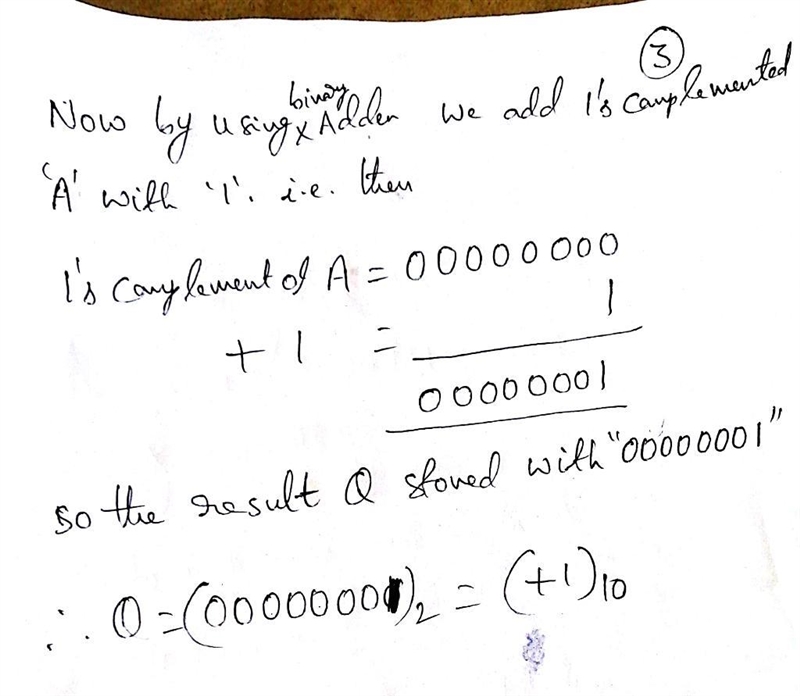 3
Now by using binary Adder we add 1's complemented
'A' with '1'. i.e. then
1's complement of A = 00000000
+ 1 = 1
00000001
so the result Q stored with "00000001"
∴ Q = (00000001)₂ = (+1)₁₀